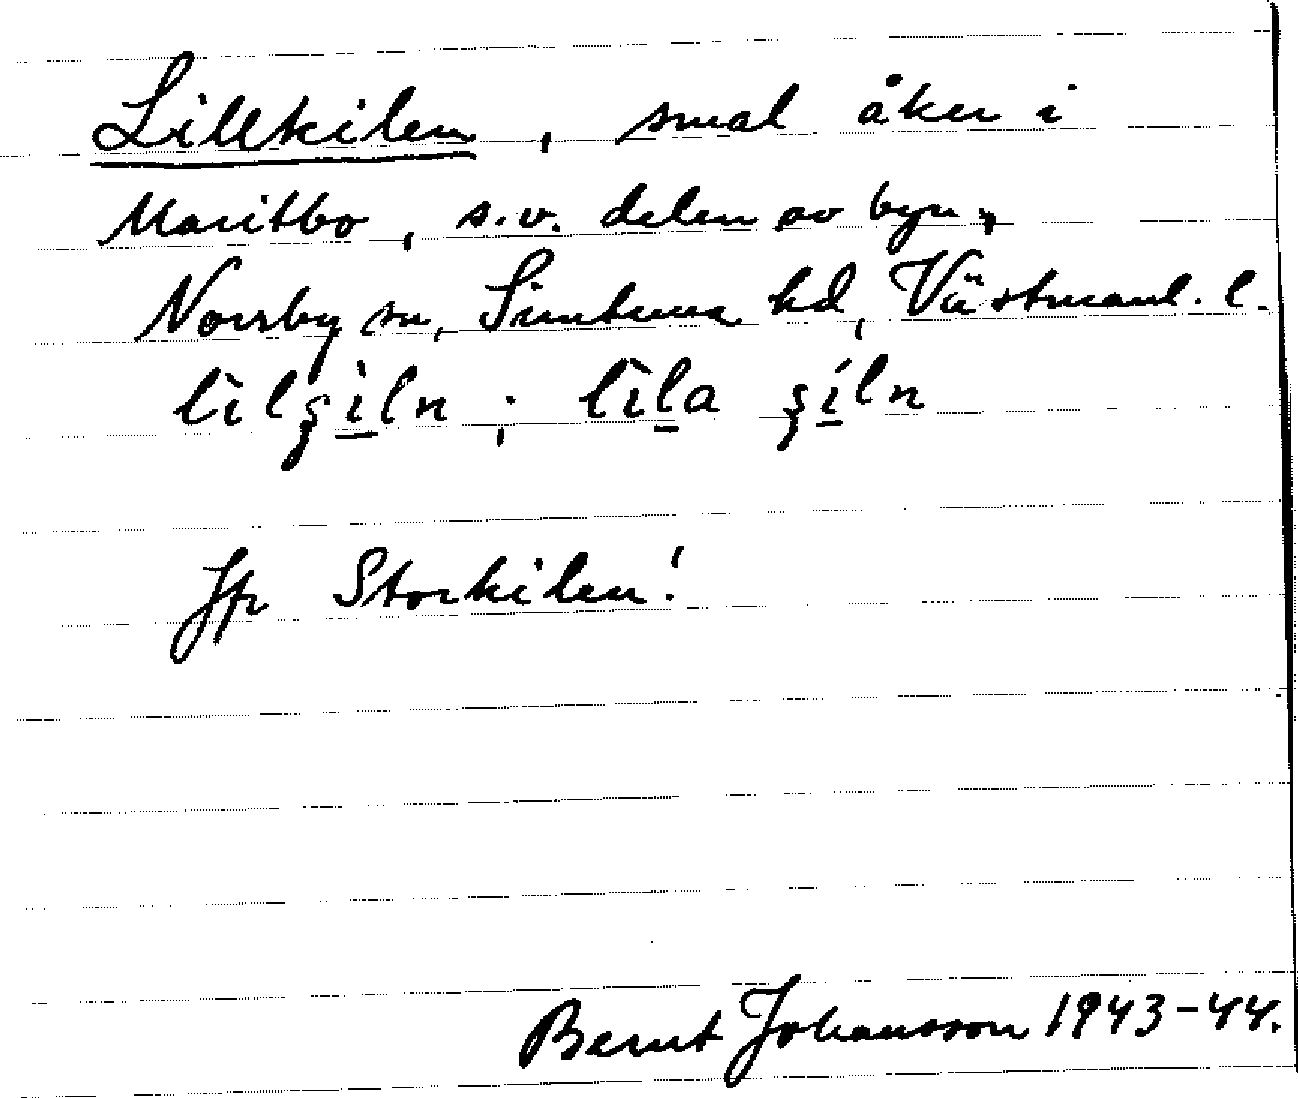 Lillkilen, smal åker i
Maritbo, s.v. delen av byn,
Norrby sn, Simtuna hd, Västmanl. l.
lìlʒìln; lìla ʒíln
Jfr Storkilen!
Bernt Johansson 1943-44.